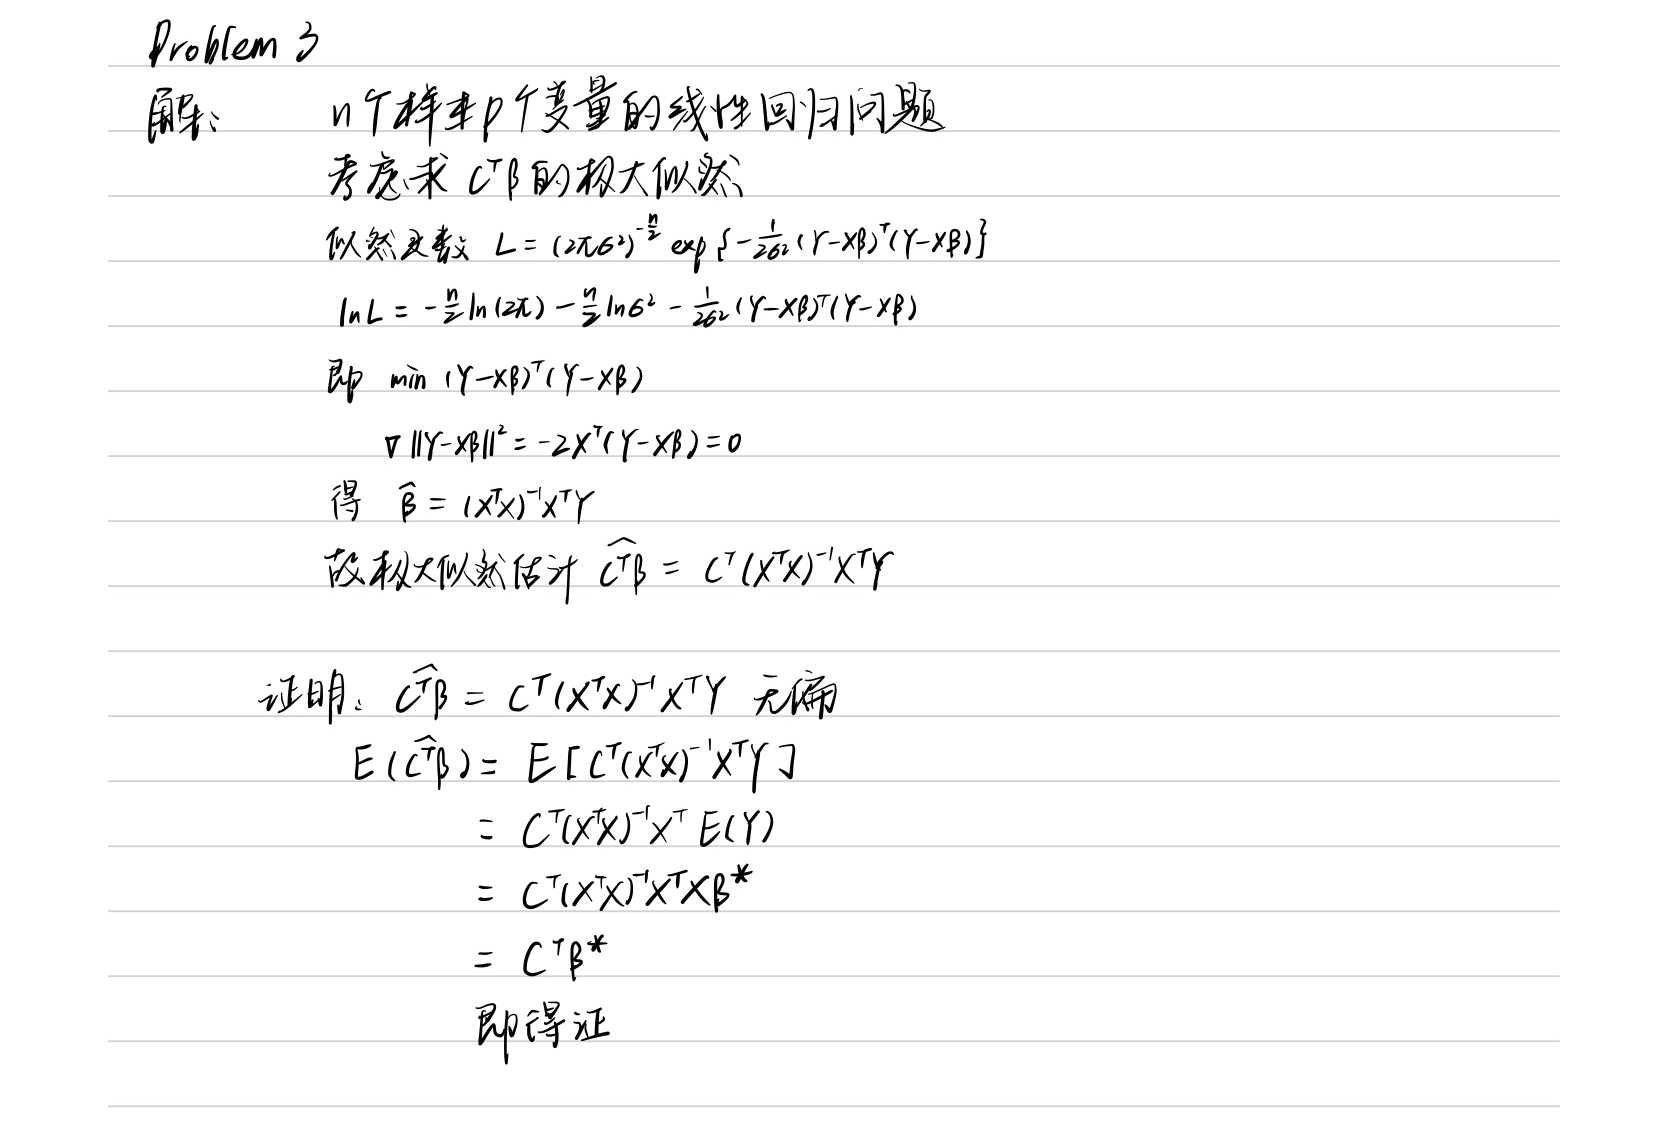 Problem 3
解: n个样本p个变量的线性回归问题
考虑求 CᵀB 的极大似然
似然函数 L = (2πσ²)^{-n/2} exp{-1/2σ² (Y-Xβ)ᵀ(Y-Xβ)}
lnL = -n/2 ln(2π) - n/2 lnσ² - 1/2σ² (Y-Xβ)ᵀ(Y-Xβ)
即 min (Y-Xβ)ᵀ(Y-Xβ)
∇||Y-Xβ||² = -2Xᵀ(Y-Xβ) = 0
得 β̂ = (XᵀX)⁻¹XᵀY
故极大似然估计 \widehat{Cᵀβ} = Cᵀ(XᵀX)⁻¹XᵀY
证明: \widehat{Cᵀβ} = Cᵀ(XᵀX)⁻¹XᵀY 无偏
E(\widehat{Cᵀβ}) = E[Cᵀ(XᵀX)⁻¹XᵀY]
= Cᵀ(XᵀX)⁻¹Xᵀ E(Y)
= Cᵀ(XᵀX)⁻¹XᵀXβ*
= Cᵀβ*
即得证